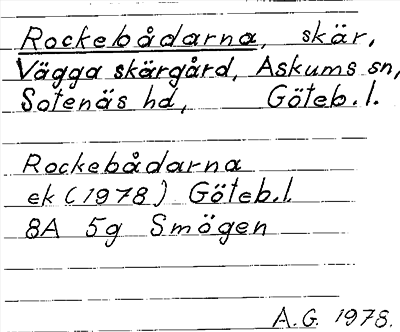 Rockebådarna, skär,
Vägga skärgård, Askums sn,
Sotenäs hd, Göteb.l.
Rockebådarna
ek (1978) Göteb.l.
8A 5g Smögen
A.G. 1978.